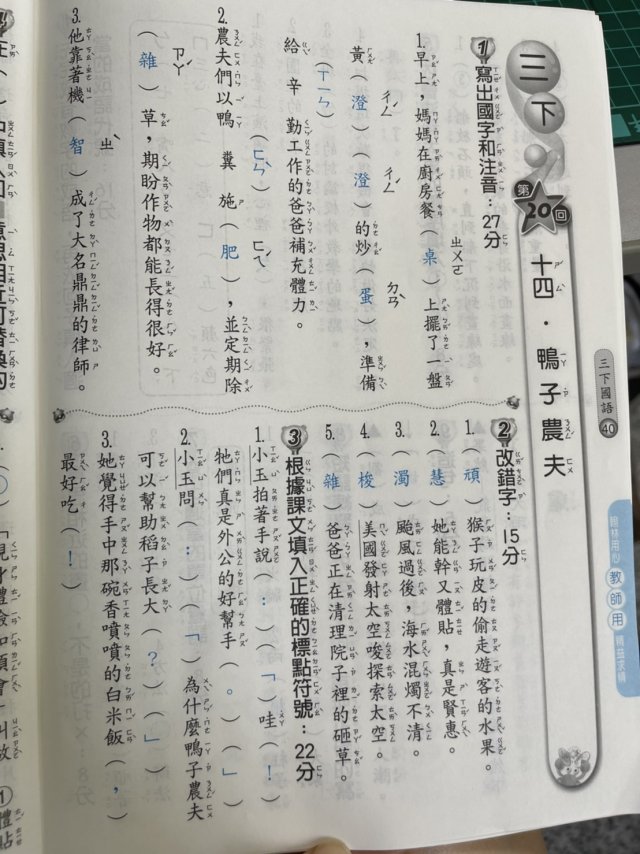 三下
第20回
十四．鴨子農夫
三下國語 40
翰林用心 教師用 精益求精
1 寫出國字和注音：27分
1. 早上，媽媽在廚房餐（桌）上擺了一盤
黃（澄）（澄）的炒（蛋），準備
給辛（ㄒㄧㄣ）勤工作的爸爸補充體力。
2. 農夫們以鴨糞施（肥），並定期除
（雜）草，期盼作物都能長得很好。
3. 他靠著機（智）成了大名鼎鼎的律師。
2 改錯字：15分
1.（頑）猴子玩皮的偷走遊客的水果。
2.（慧）她能幹又體貼，真是賢惠。
3.（濁）颱風過後，海水混燭不清。
4.（梭）美國發射太空唆探索太空。
5.（雜）爸爸正在清理院子裡的砸草。
3 根據課文填入正確的標點符號：22分
1. 小玉拍著手說（：）（「）哇（！）
牠們真是外公的好幫手（。）（」）
2. 小玉問（：）（「）為什麼鴨子農夫
可以幫助稻子長大（？）（」）
3. 她覺得手中那碗香噴噴的白米飯（，）
最好吃（！）